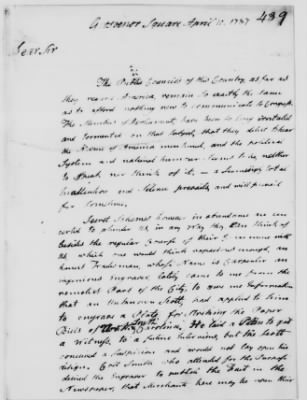 Grosvenor Square April 10. 1787 489
Dear Sir
The Public Councils of this Country, as far as
they regard America, remain so exactly the same
as to afford nothing new to communicate to Congress.
The Members of Parliament, have been so long irritated
and tormented on that subject, that they detest to hear
the Name of America mentioned, and the political
System and national humour seems to be, neither
to speak nor think of it, — a
inattention and silence prevails, and will prevail
for sometime.
Secret Schemes however in abundance are
to plunder Us in any Way they can think of
besides the regular Course of their Commerce with
Us which one would think a
honest Tradesman, whose Name is Carpenter an
ingenious Engraver lately came to me from the
remotest Part of the City, to give me Information
that an Unknown Scott, had applied to him
to engrave a Plate, for striking the Paper
Bills of South Carolina. He laid a Plan to get
a Witness, to a future Interview, but the Scott
conceived a Suspicion and would not lay open his
design. Coll Smith who attended for the Purpose
desired the Engraver to publish the Fact in the
Newspaper, that Merchants here may be upon their